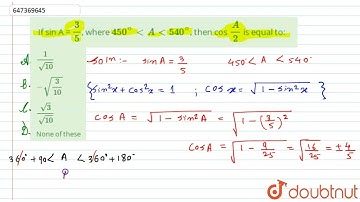 647369645
If sin A = 3/5, where 450° < A < 540°, then cos A/2 is equal to:
A. 1/√10
B. -√(3/10)
√3/√10
None of these
Soln:- sin A = 3/5 450° < A < 540°
{sin²x + cos²x = 1 ; cos x = √(1 - sin²x)
cos A = √(1 - sin²A) = √(1 - (3/5)²)
cos A = √(1 - 9/25) = √(16/25) = ± 4/5
360° + 90 < A < 360° + 180°
doubtnut